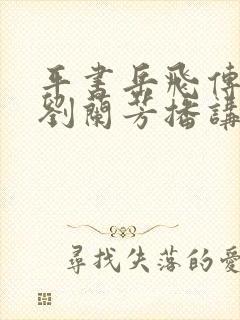 平書岳飛傳
劉蘭芳播講
尋找失落的愛